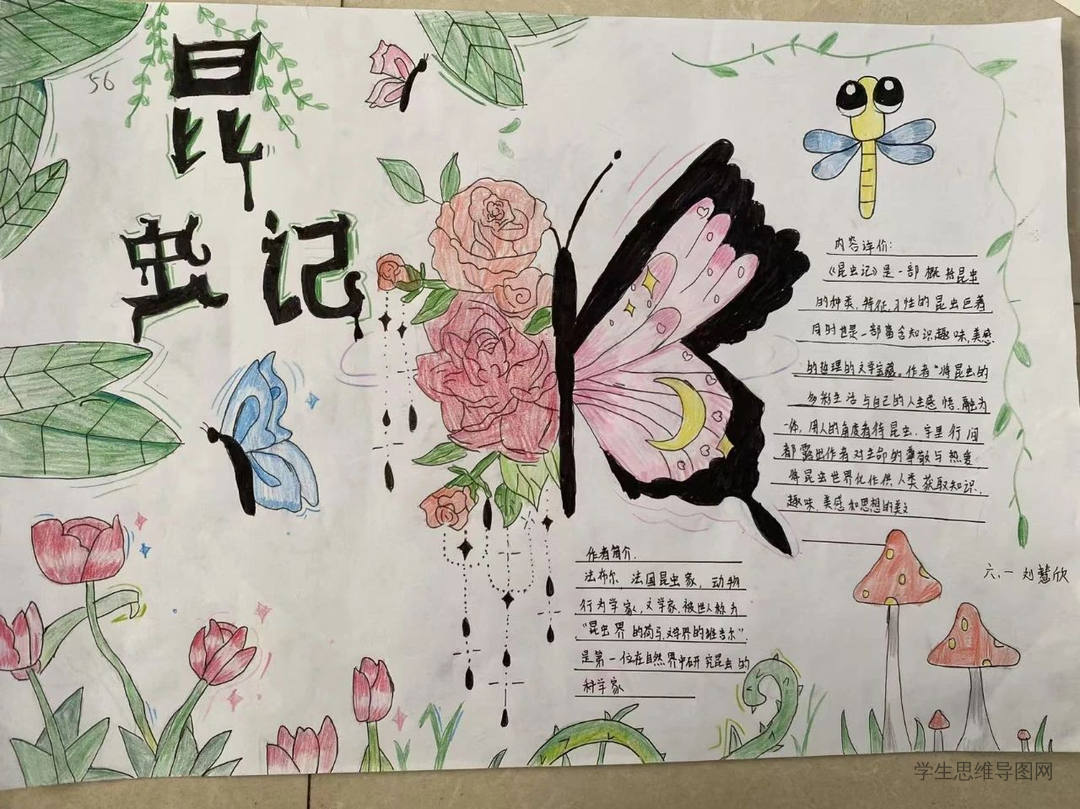 56
昆
虫记
内容评价:
《昆虫记》是一部概括昆虫
的种类、特征、习性的昆虫巨著
同时也是一部富含知识、趣味、美感
的哲理的文学宝藏。作者"将昆虫的
多彩生活与自己的人生感悟融为
一体,用人的角度看待昆虫,字里行间
都露出作者对生命的尊敬与热爱
将昆虫世界化作供人类获取知识、
趣味、美感和思想的美文
作者简介.
法布尔 法国昆虫家,动物
行为学家,文学家.被世人称为
"昆虫界的荷马,文学界的维吉尔".
是第一位在自然界中研究昆虫的
科学家
六.一 刘慧欣
学生思维导图网